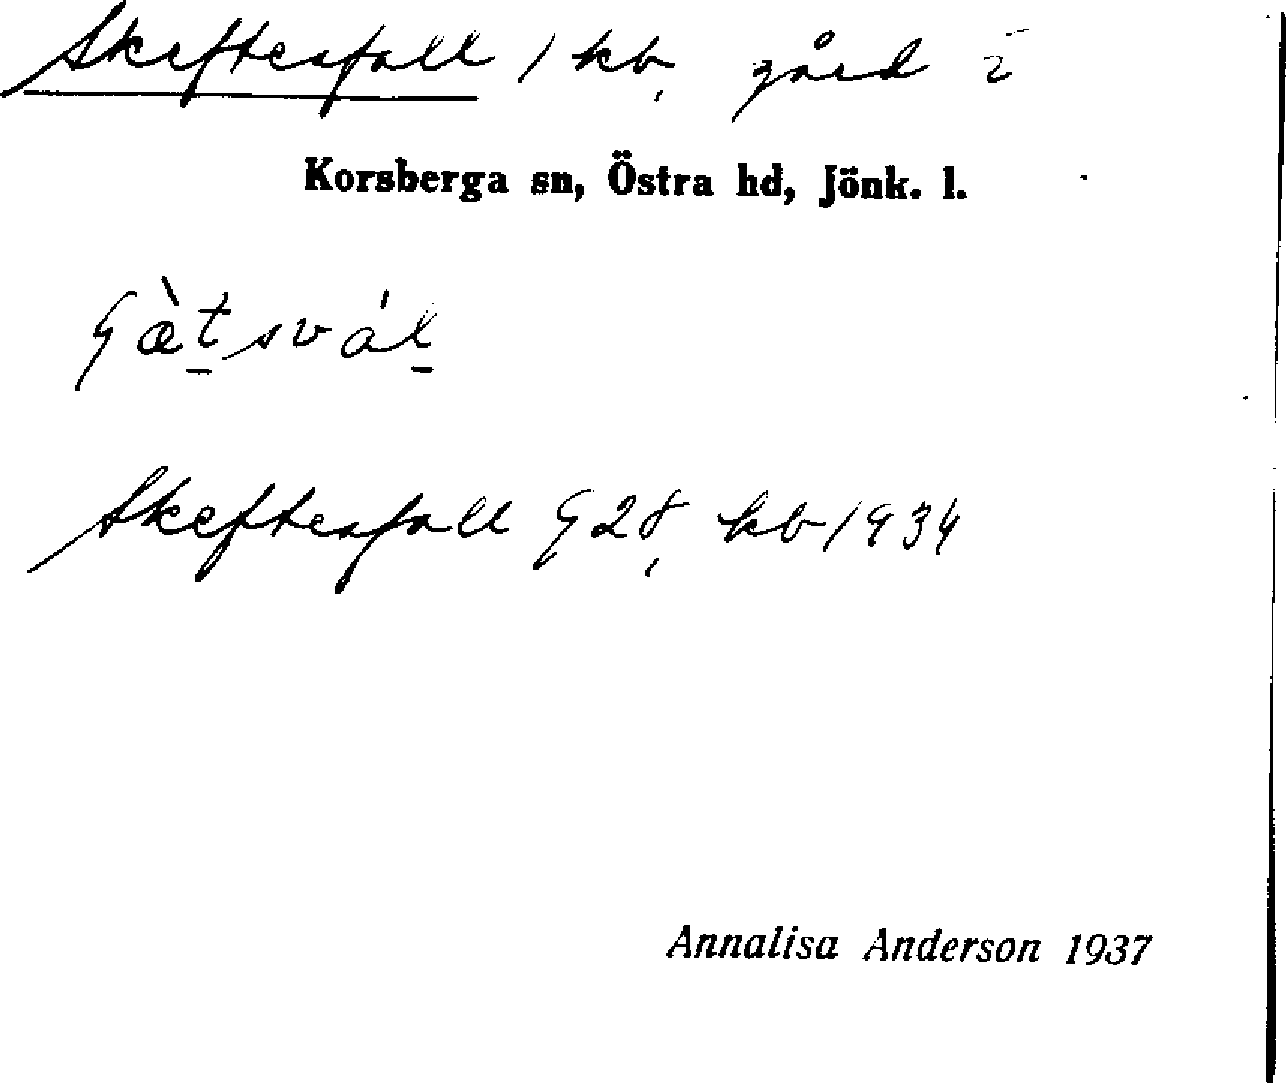 Skeftesfall 1 kb, gård i
Korsberga sn, Östra hd, Jönk. l.
Skeftesfall G 28, kb 1934
Annalisa Anderson 1937